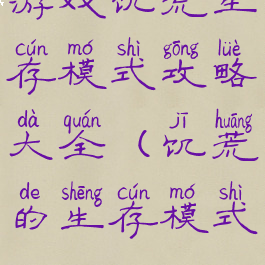 游戏饥荒生
cún mó shì gōng lüè
存模式攻略
dà quán jī huāng
大全(饥荒
de shēng cún mó shì
的生存模式